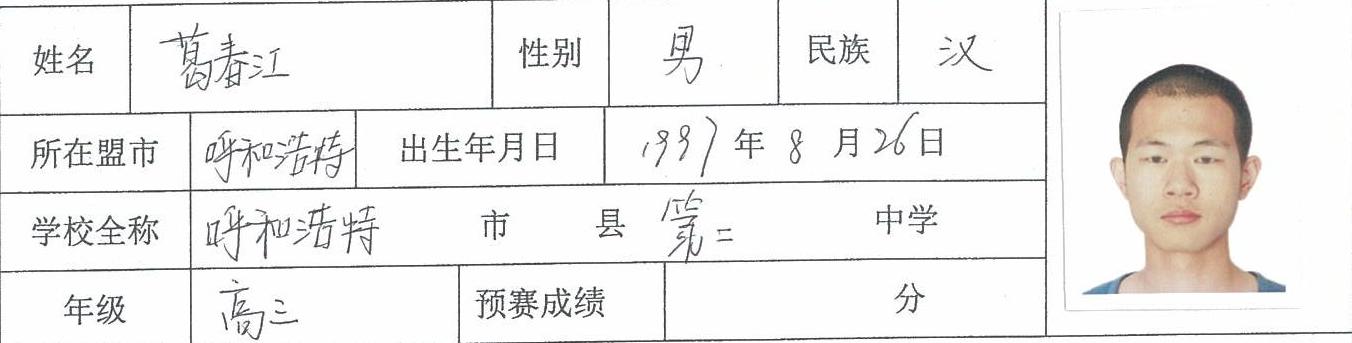 姓名 葛春江 性别 男 民族 汉
所在盟市 呼和浩特 出生年月日 1997年8月26日
学校全称 呼和浩特 市 县 第二 中学
年级 高三 预赛成绩 分